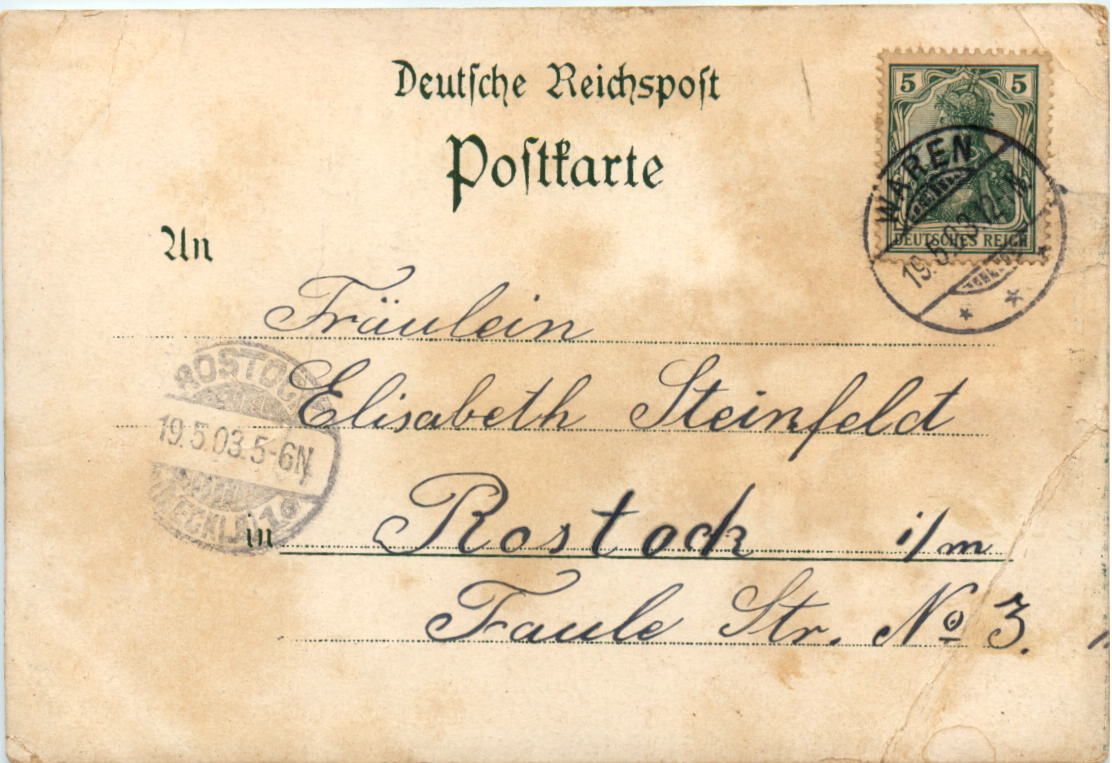 Deutsche Reichspost
Postkarte
5 5
DEUTSCHES REICH
WAREN
19.5.03.12-1N.
An
Fräulein
Elisabeth Steinfeld
ROSTOCK
19.5.03.5-6N
(MECKLB) 1.
in Rostock i/m
Faule Str. No 3.